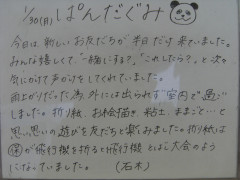 1/30(月) ぱんだぐみ
今日は、新しいお友だちが半日だけ来ていました。
みんな嬉しくて"一緒にする?"、"これしたら?"、と次々
気にかけて声かけをしてくれていました。
雨上がりだった為、外には出られず室内で過ごし
ました。折り紙、お絵描き、粘土、ままごと…と
思い思いの遊びを友だちと楽しみました。折り紙は
保が飛行機を折ると飛行機とばし大会のよう
になっていました。 (石木)